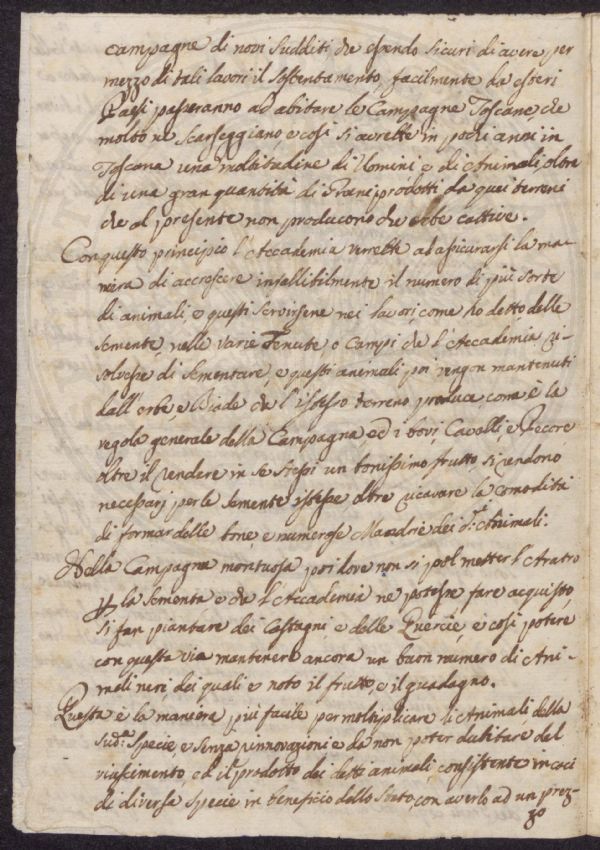 campagne di novi sudditi che essendo sicuri di avere per
mezzo di tali lavori il sostentamento, facilmente da esteri
Paesi passeranno ad abitare le Campagne Toscane, che
molto ne scarseggiano e così si avrebbe in pochi anni in
Toscana una moltitudine di Uomini, e di Animali, oltre
di una gran quantità di Grani prodotti da quei terreni
che al presente non producono che erbe cattive.
Con questo principio l'Accademia verebbe ad assicurarsi la ma-
niera di accrescere infallibilmente il numero di più sorte
di animali, e questi servirsene nei lavori come ho detto delle
semente, nelle varie Tenute o Campi che l'Accademia ri-
solvesse di sementare, e questi animali poi vengon mantenuti
dall'erbe, e Biade che l'istesso terreno produce, come è la
regola generale della Campagna ed i bovi Cavalli, e Pecore
oltre il rendere in se stessi un bonissimo frutto si rendono
necessarj per le semente istesse oltre ricavare la comodità
di formar delle bone, e numerose Mandrie dei d.ⁱ Animali.
Nella Campagna montuosa poi dove non si pol metter l'Aratro
p la sementa, e che l'Accademia ne potesse fare acquisto,
si fan piantare dei Castagni e delle Quercie, e così potere
con questa via mantenere ancora un buon numero di Ani-
mali neri, dei quali è noto il frutto, e il guadagno.
Questa è la maniera più facile per moltiplicare li Animali della
sud.ª specie, e senza innovazioni e da non poter dubitare del
riuscimento, ed il prodotto dei detti animali, consistente in caci
di diversa specie in beneficio dello Stato, con averlo ad un prez-
zo